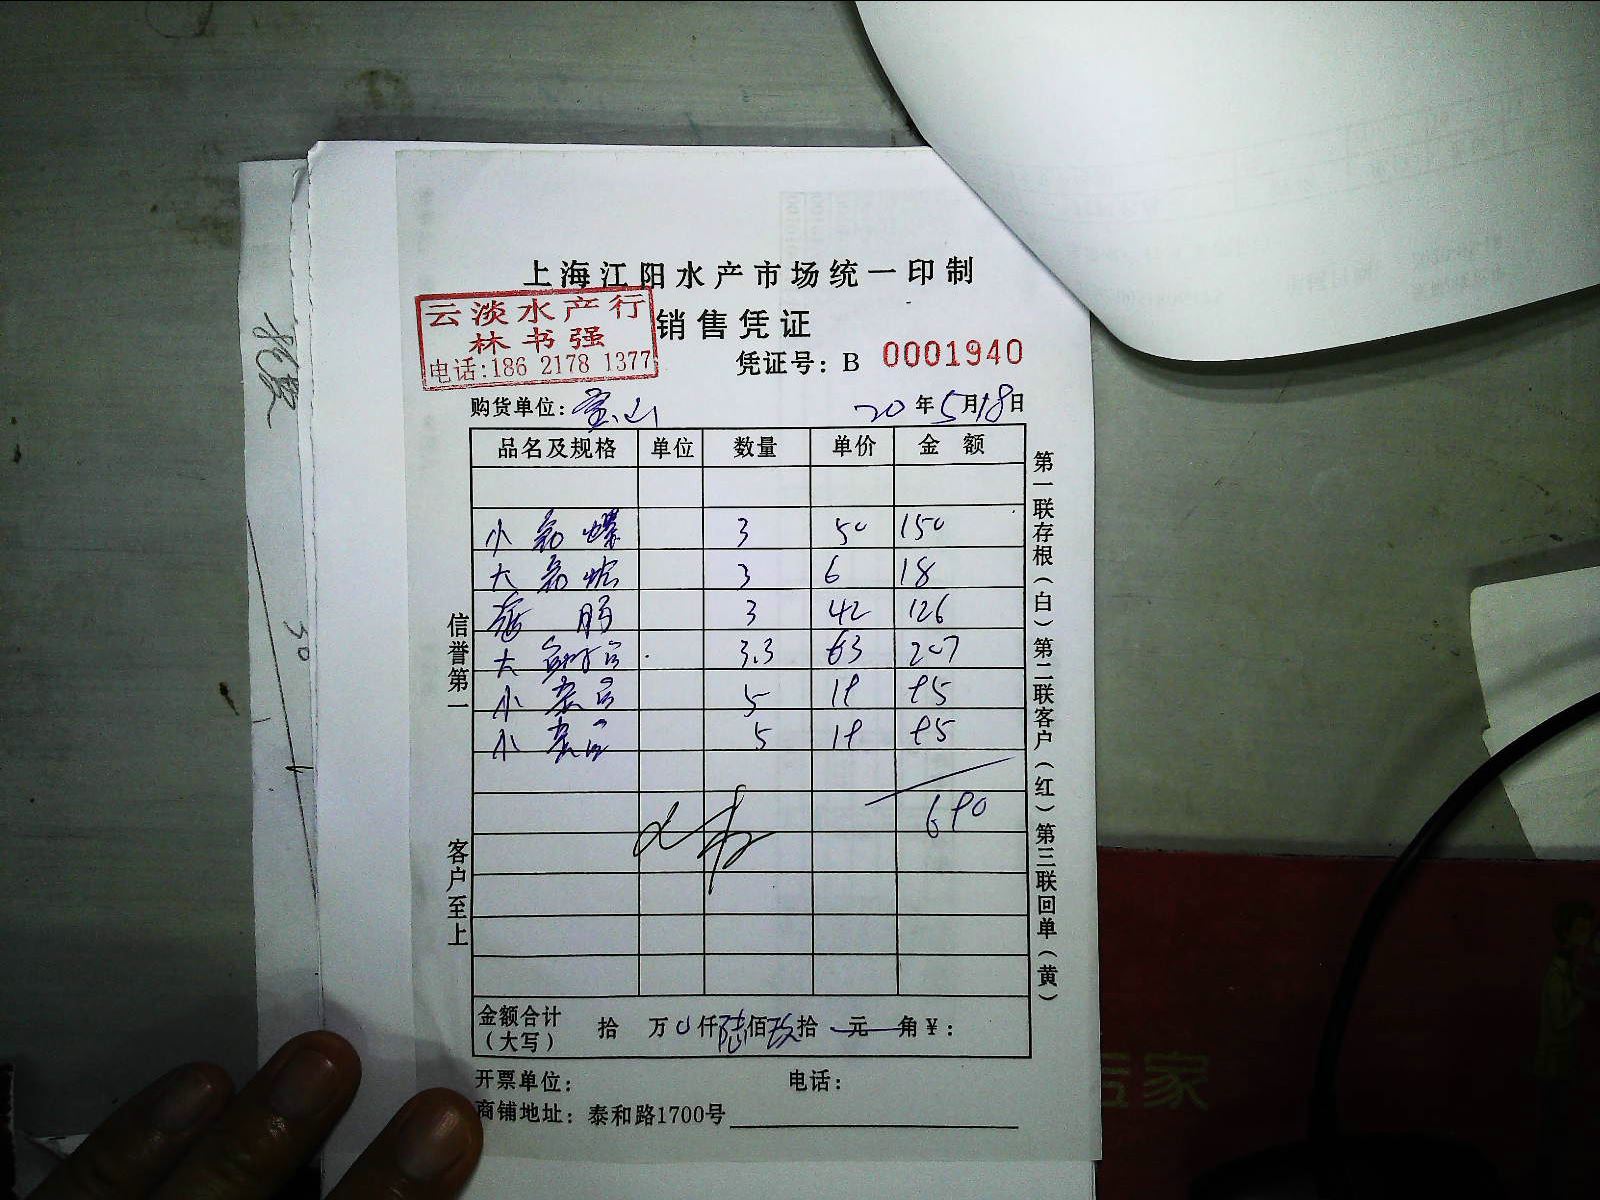 上海江阳水产市场统一印制
云淡水产行
林书强
电话:186 2178 1377
销售凭证
凭证号: B 0001940
购货单位: 宝山 20年5月18日
品名及规格 单位 数量 单价 金额
小 螺 3 50 150
大 3 6 18
3 42 126
大 3.3 63 207
小 5
小 5
690
金额合计(大写) 拾 万 0 仟 陆 佰 玖 拾 元 角 ¥:
开票单位: 电话:
商铺地址: 泰和路1700号
信誉第一
客户至上
第一联存根(白)第二联客户(红)第三联回单(黄)
50